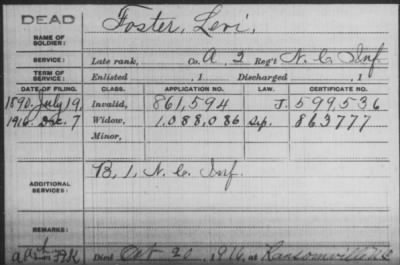 DEAD
NAME OF SOLDIER: Foster, Levi,
SERVICE: Late rank, Co. A, 2 Reg't N. C. Inf
TERM OF SERVICE: Enlisted , 1 Discharged , 1
DATE OF FILING. CLASS. APPLICATION NO. LAW. CERTIFICATE NO.
1890. July 19, Invalid, 861,594 J. 599,536
1916. Dec. 7 Widow, 1,088,086 Sep. 863777
Minor,
ADDITIONAL SERVICES: B, 1, N. C. Inf.
REMARKS:
Died Oct 20, 1916, at Ransomville N C